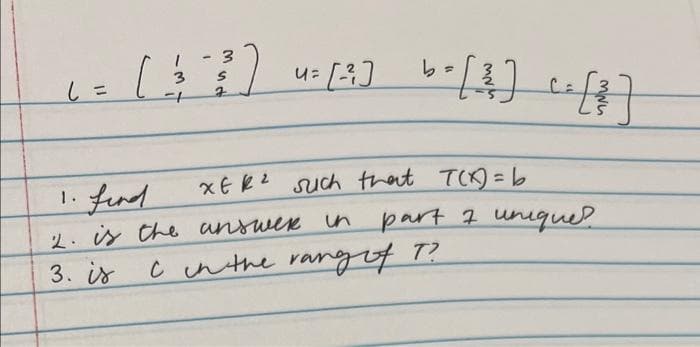 L = [ 1 -3 ; 3 5 ; -1 7 ] u = [ 2 ; -1 ] b = [ 3 ; 2 ; -5 ] c = [ 3 ; 2 ; 5 ]
1. find x ∈ R² such that T(x) = b
2. is the answer in part 1 unique?
3. is c in the rang of T?